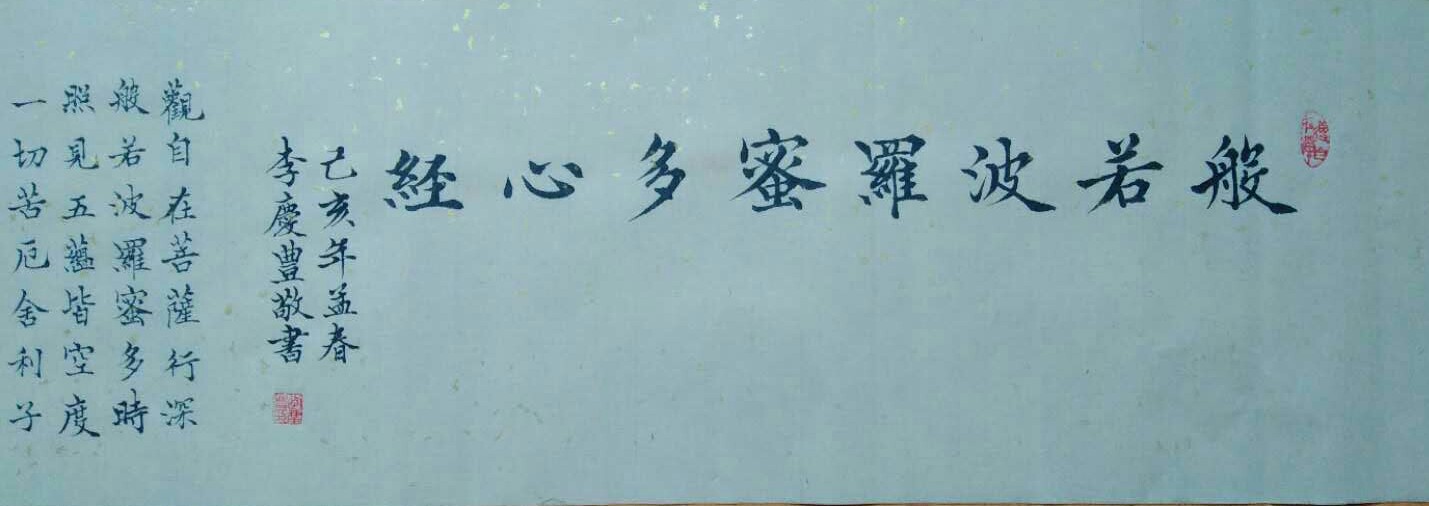 般若波羅蜜多心経
己亥年孟春
李慶豊敬書
觀自在菩薩行深
般若波羅蜜多時
照見五蘊皆空度
一切苦厄舍利子